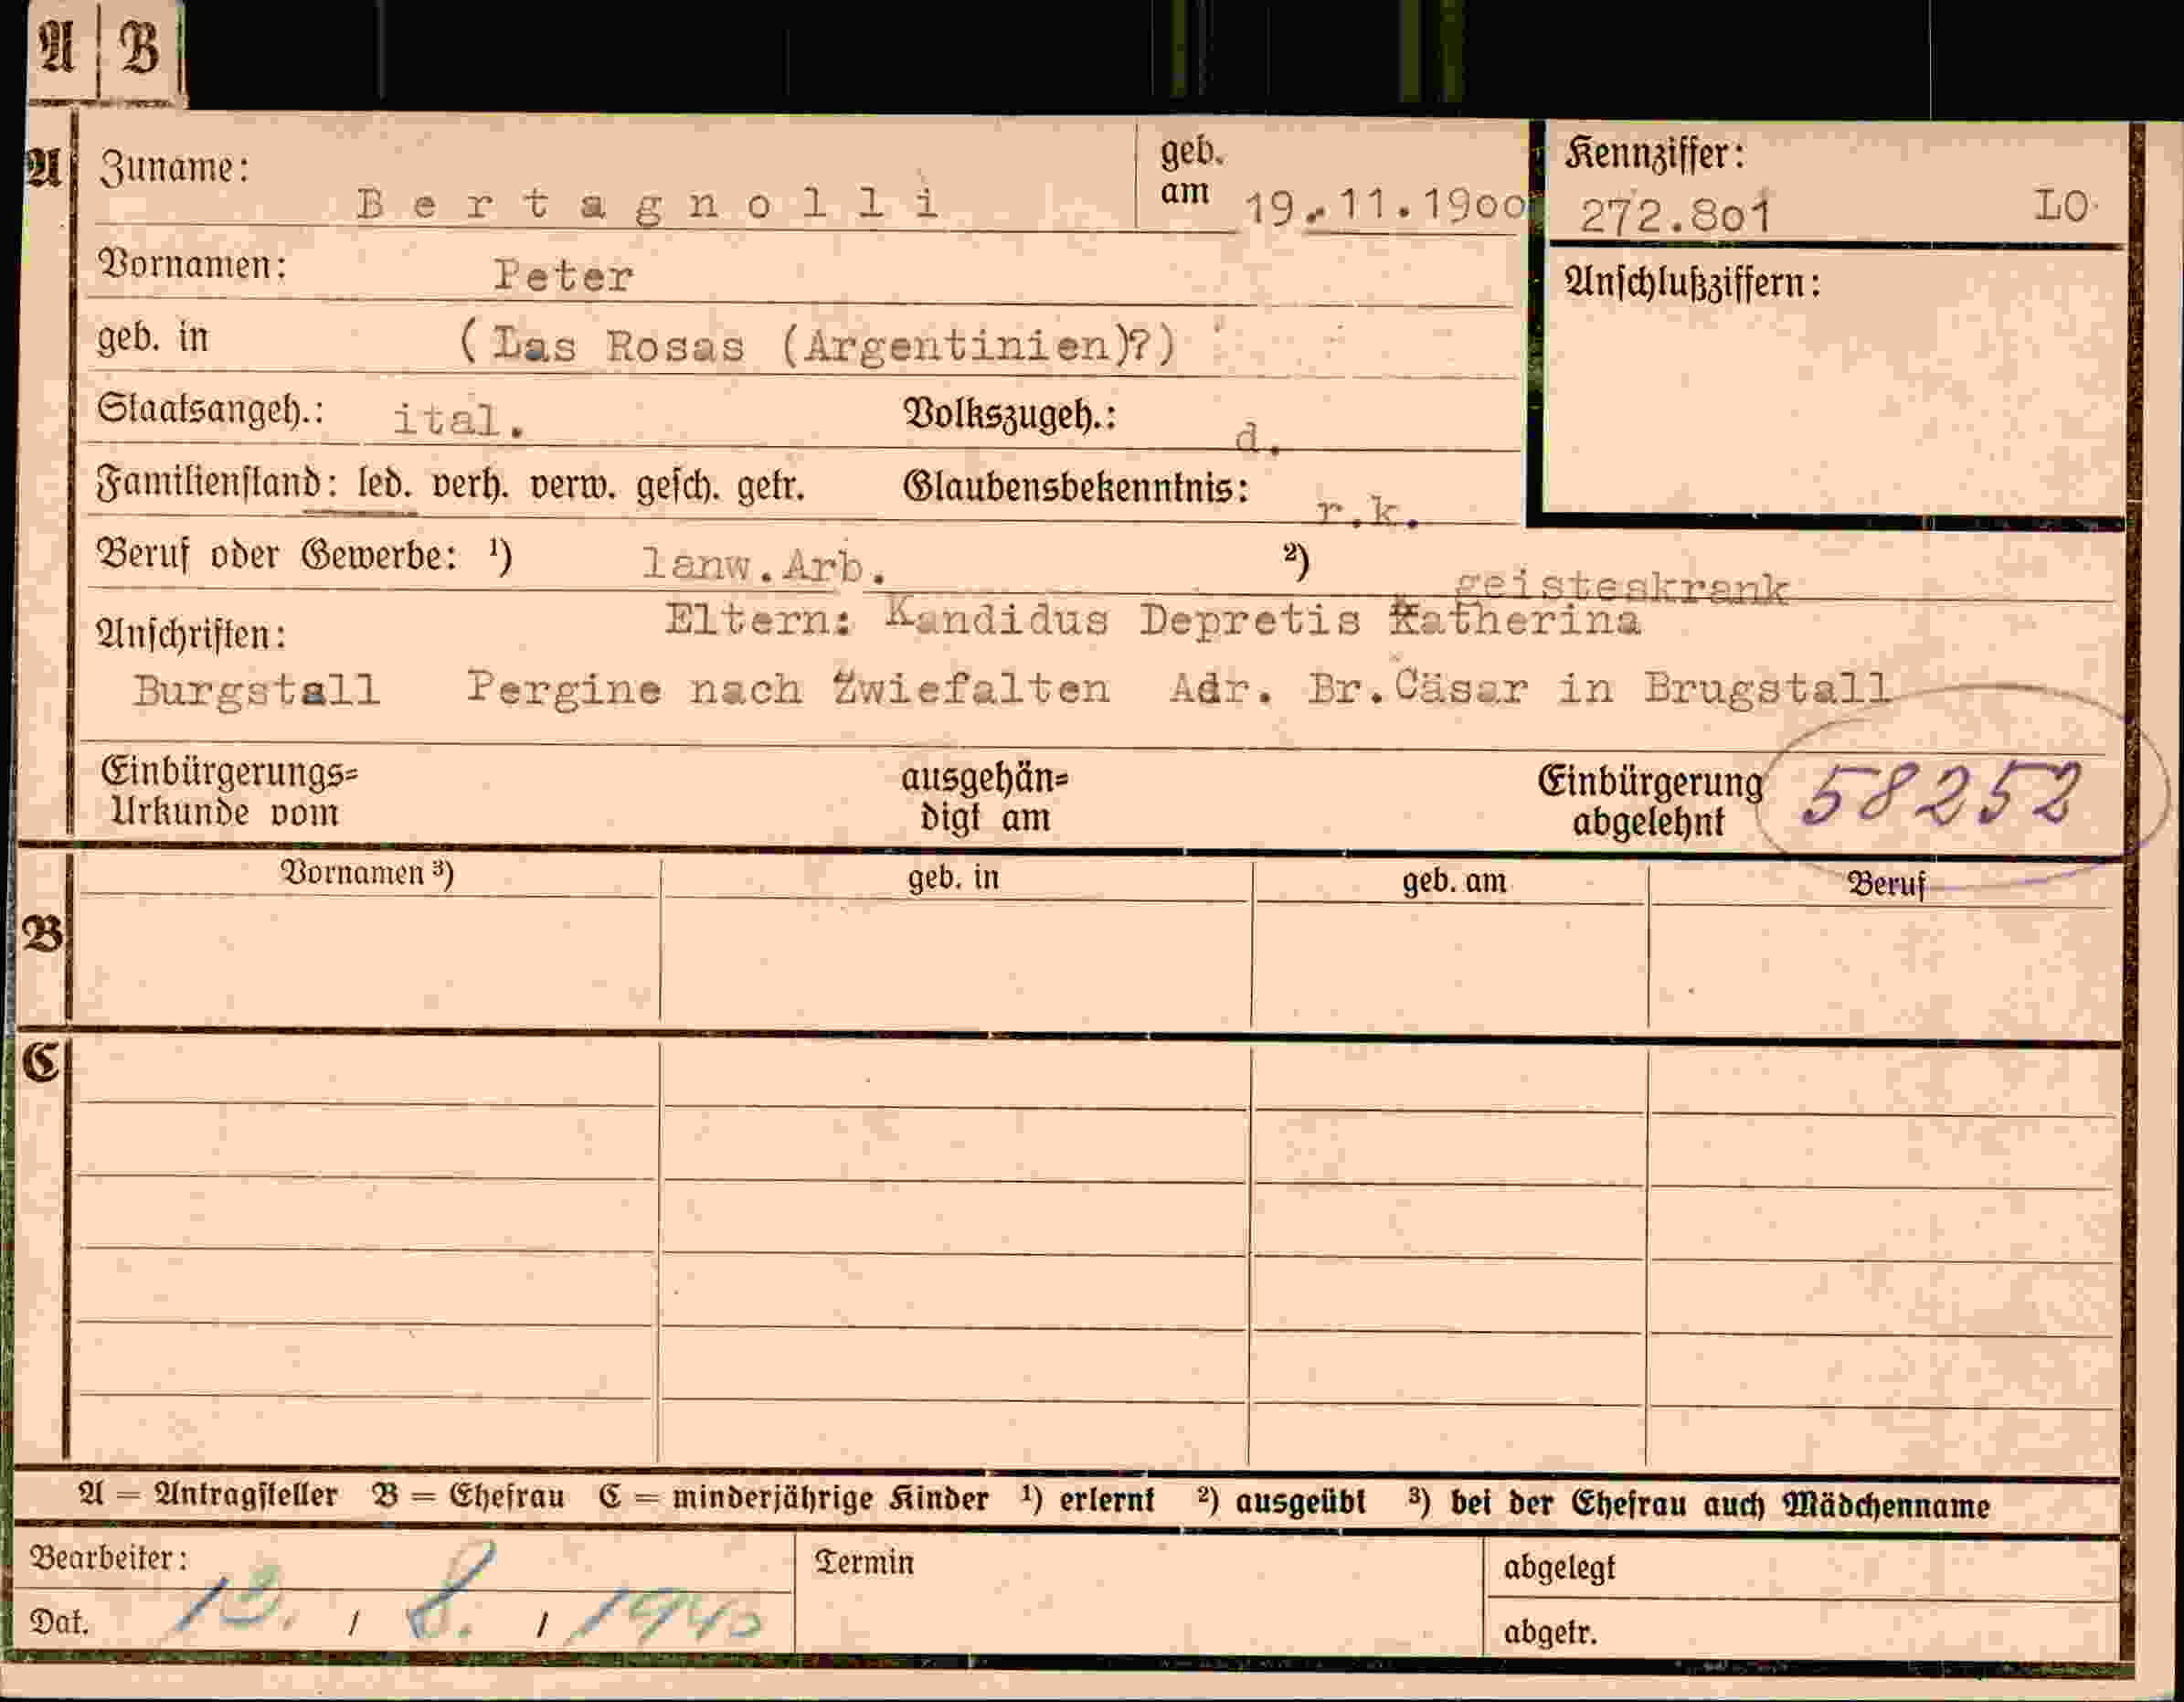 A B
A Zuname: Bertagnolli geb. am 19.11.1900 Kennziffer: 272.801 LO.
Vornamen: Peter Anschlußziffern:
geb. in (Las Rosas (Argentinien)?)
Staatsangeh.: ital. Volkszugeh.: d.
Familienstand: led. verh. verw. gesch. getr. Glaubensbekenntnis: r.k.
Beruf oder Gewerbe: ¹) lanw.Arb. ²) geisteskrank
Anschriften: Eltern: Kandidus Depretis Katherina
Burgstall Pergine nach Zwiefalten Adr. Br.Cäsar in Brugstall
Einbürgerungs= ausgehän= Einbürgerung 58252
Urkunde vom digt am abgelehnt
Vornamen ³) geb. in geb. am Beruf
B
C
A = Antragsteller B = Ehefrau C = minderjährige Kinder ¹) erlernt ²) ausgeübt ³) bei der Ehefrau auch Mädchenname
Bearbeiter: Termin abgelegt
Dat. 13. / 8. / 1940 abgetr.